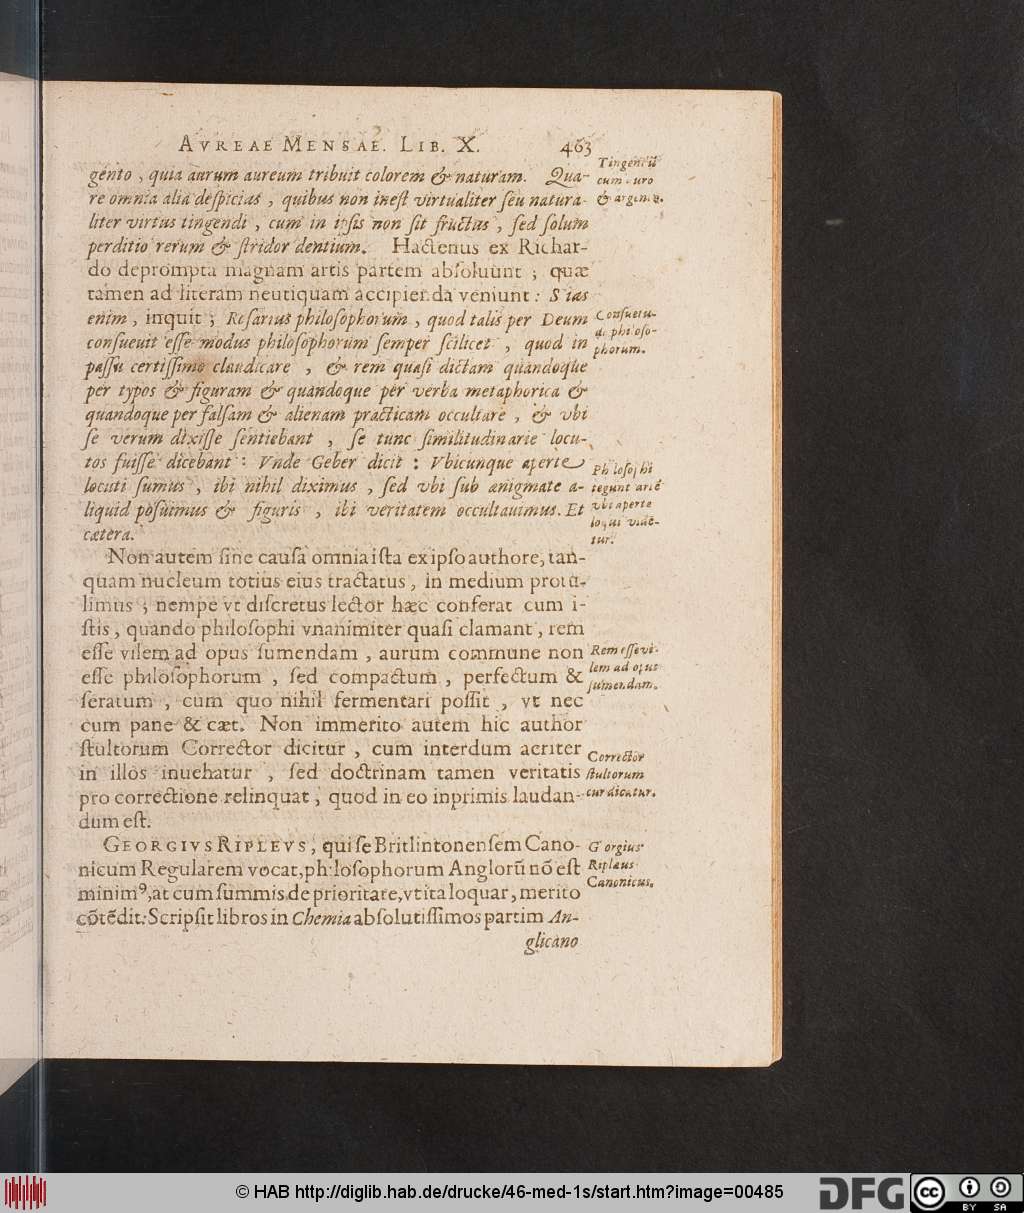 AVREAE MENSAE. LIB. X. 463
gento, quia aurum aureum tribuit colorem & naturam. Qua-
re omnia alia deſpicias, quibus non ineſt virtualiter ſeu natura-
liter virtus tingendi, cum in ipſis non ſit fructus, ſed ſolum
perditio rerum & ſtridor dentium. Hactenus ex Richar-
do deprompta magnam artis partem abſoluunt; quæ
tamen ad literam neutiquam accipienda veniunt: Scias
enim, inquit; Roſarius philoſophorum, quod talis per Deum
conſueuit eſſe modus philoſophorum ſemper ſcilicet, quod in
paſſu certiſſimo claudicare, & rem quaſi dictam quandoque
per typos & figuram & quandoque per verba metaphorica &
quandoque per falſam & alienam practicam occultare, & vbi
ſe verum dixiſſe ſentiebant, ſe tunc ſimilitudinarie locu-
tos fuiſſe dicebant: Vnde Geber dicit: Vbicunque aperte
locuti ſumus, ibi nihil diximus, ſed vbi ſub ænigmate a-
liquid poſuimus & figuris, ibi veritatem occultauimus. Et
cætera.
Non autem ſine cauſa omnia iſta ex ipſo authore, tan-
quam nucleum totius eius tractatus, in medium protu-
limus; nempe vt diſcretus lector hæc conferat cum i-
ſtis, quando philoſophi vnanimiter quaſi clamant, rem
eſſe vilem ad opus ſumendam, aurum commune non
eſſe philoſophorum, ſed compactum, perfectum &
ſeratum, cum quo nihil fermentari poſſit, vt nec
cum pane & cæt. Non immerito autem hic author
ſtultorum Corrector dicitur, cum interdum acriter
in illos inuehatur, ſed doctrinam tamen veritatis
pro correctione relinquat, quod in eo inprimis laudan-
dum eſt.
GEORGIVS RIPLEVS, qui ſe Britlintonenſem Cano-
nicum Regularem vocat, philoſophorum Anglorũ nõ eſt
minimꝰ, at cum ſummis de prioritare, vt ita loquar, merito
cõtẽdit: Scripſit libros in Chemia abſolutiſſimos partim An-
glicano
Tingendũ
cum auro
& argento.
Conſuetu-
do philoſo-
phorum.
Philoſophi
tegunt artẽ
vbi aperte
loqui viden-
tur.
Rem eſſe vi-
lem ad opus
ſumendam.
Corrector
ſtultorum
cur dicatur.
Georgius
Riplæus
Canonicus.
© HAB http://diglib.hab.de/drucke/46-med-1s/start.htm?image=00485
DFG
cc BY SA